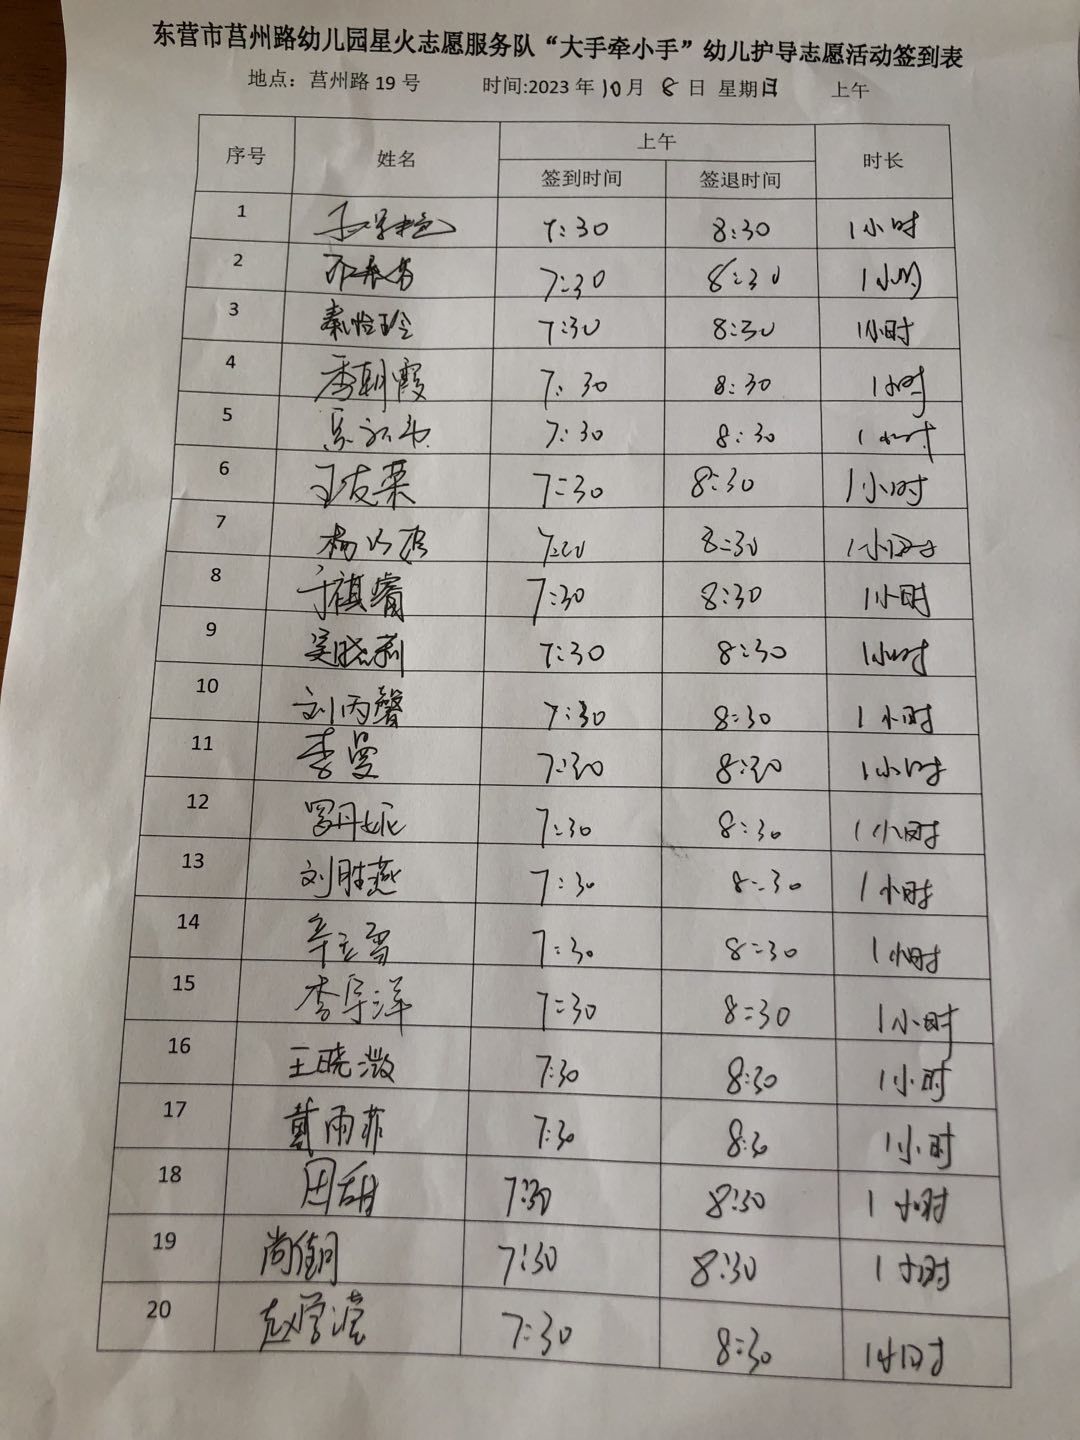 东营市莒州路幼儿园星火志愿服务队“大手牵小手”幼儿护导志愿活动签到表
地点：莒州路 19 号 时间:2023 年 10 月 8 日 星期日 上午
序号 姓名 上午 时长
签到时间 签退时间
1 7:30 8:30 1小时
2 7:30 8:30 1小时
3 秦怡玲 7:30 8:30 1小时
4 季朝霞 7:30 8:30 1小时
5 7:30 8:30 1小时
6 王友荣 7:30 8:30 1小时
7 杨 8:30 1小时
8 于祺睿 7:30 8:30 1小时
9 吴晓莉 7:30 8:30 1小时
10 刘丙馨 7:30 8:30 1小时
11 李曼 7:30 8:30 1小时
12 罗丹妮 7:30 8:30 1小时
13 刘胜燕 7:30 8:30 1小时
14 辛玉雪 7:30 8:30 1小时
15 李导洋 7:30 8:30 1小时
16 王晓溦 7:30 8:30 1小时
17 戴雨菲 7:30 8:30 1小时
18 田甜 7:30 8:30 1小时
19 尚佳同 7:30 8:30 1小时
20 赵学滢 7:30 8:30 1小时